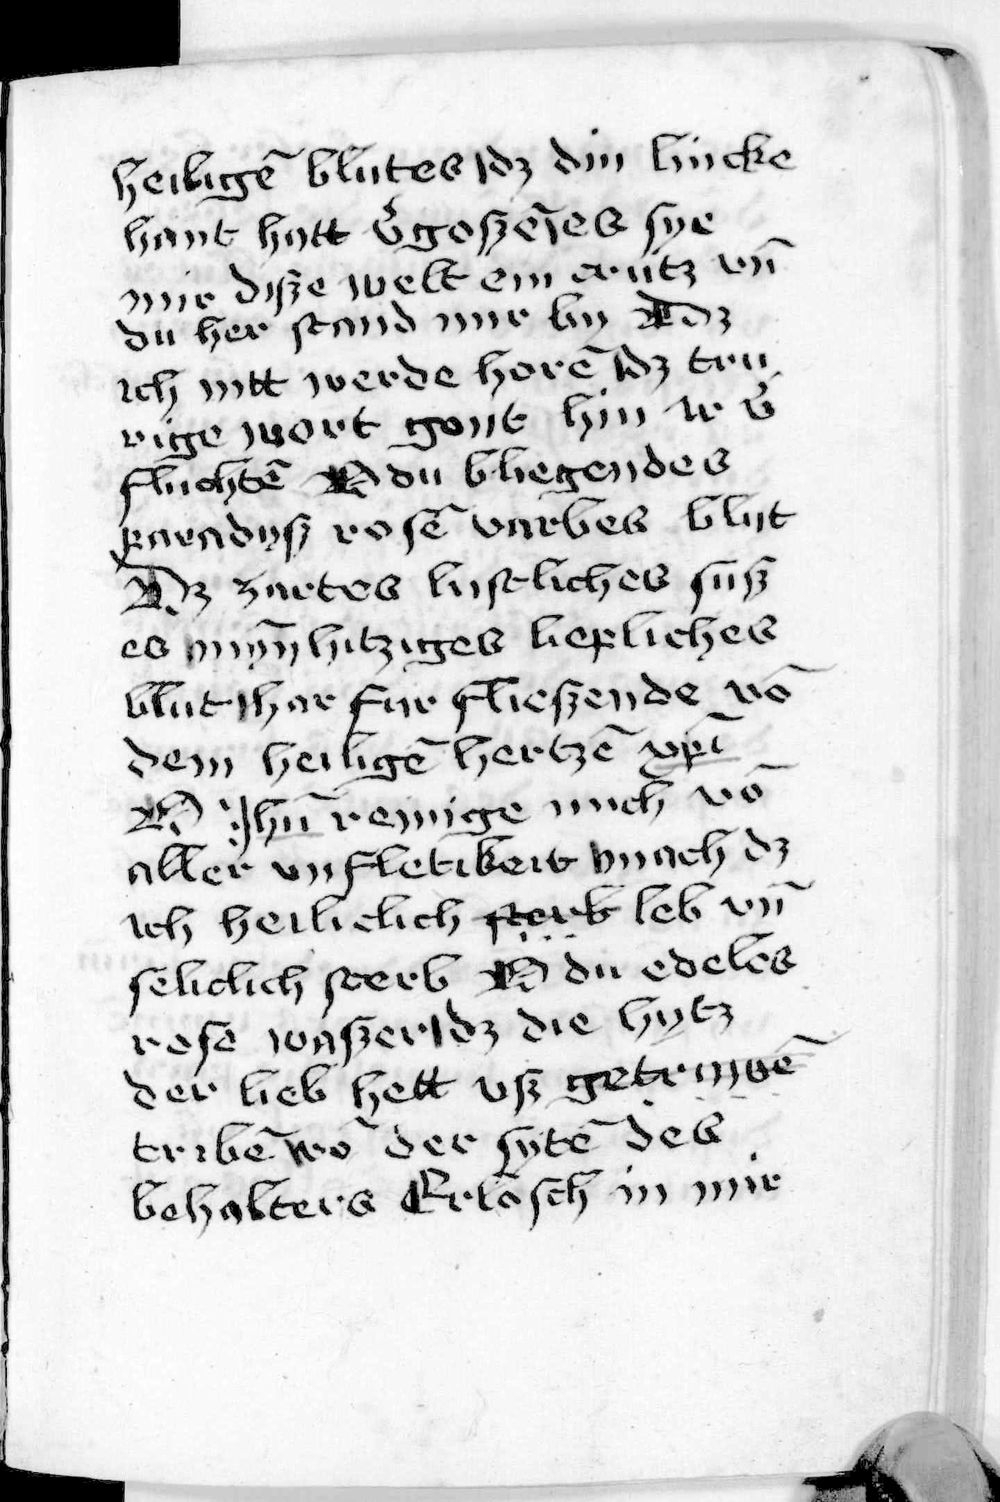 heiligē blutes dz din lincke
hant hatt v̄goßē es sye
mir diße welt ein crutz vn̄
du her stand mir by Dz
ich nitt werde horē dz tru
rige wort gont hin ir v̄
fluchtē O du bliegendes
paradyß rosē varbes blut
O zartes lustliches suß
es mynhitziges liepliches
blut har fur fließende vō
dem heiligē hertzē xp̄i
O Jhū reinige mich vō
aller vnfletikeit mach dz
ich heiliclich sterb leb vn̄
seliclich sterb O du edeles
rose waßer dz die hytz
der lieb hett vß getruwē
tribē vō der sytē des
behalters Erlösch in mir